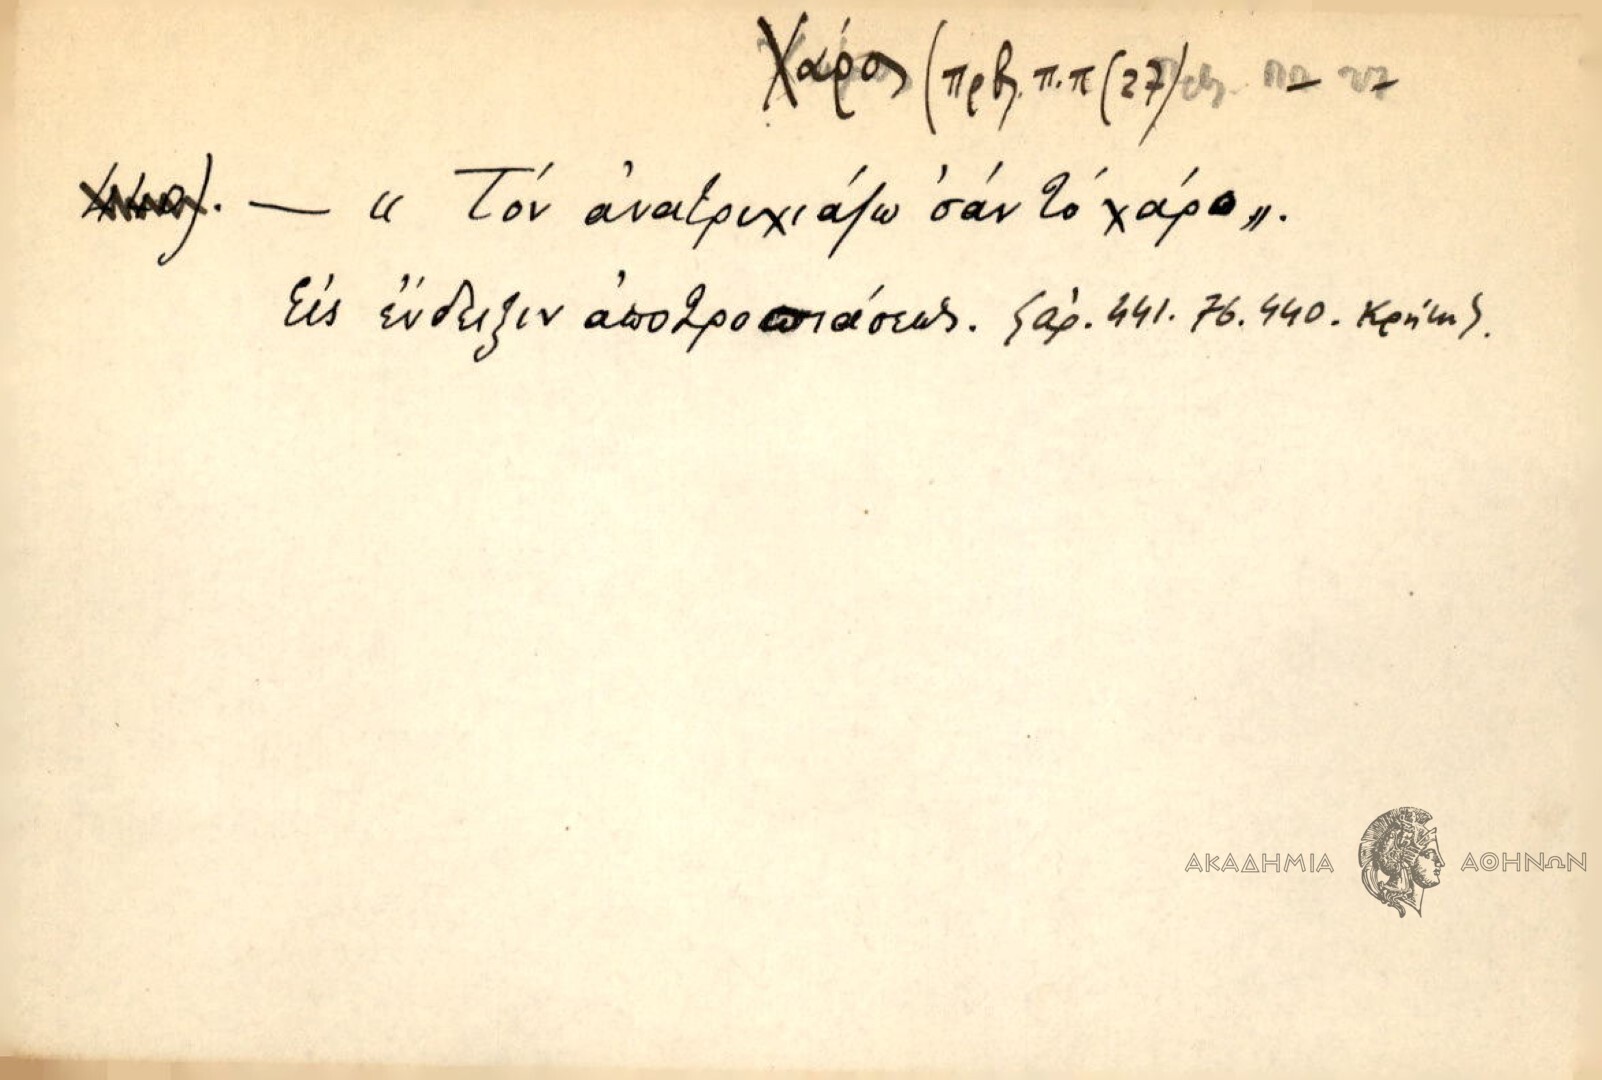 Χάρος (πρβ. π.π (27)
440). — « Τόν ἀνατριχιάζω σάν τό χάρο».
Εἰς ἔνδειξιν ἀποτροπιάσεως. {ἀρ. 441. 76. 440. Κρήτη}.
ΑΚΑΔΗΜΙΑ ΑΘΗΝΩΝ